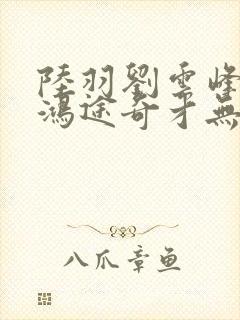 陸羽劉雲峰
鴻途奇才無
八爪章鱼